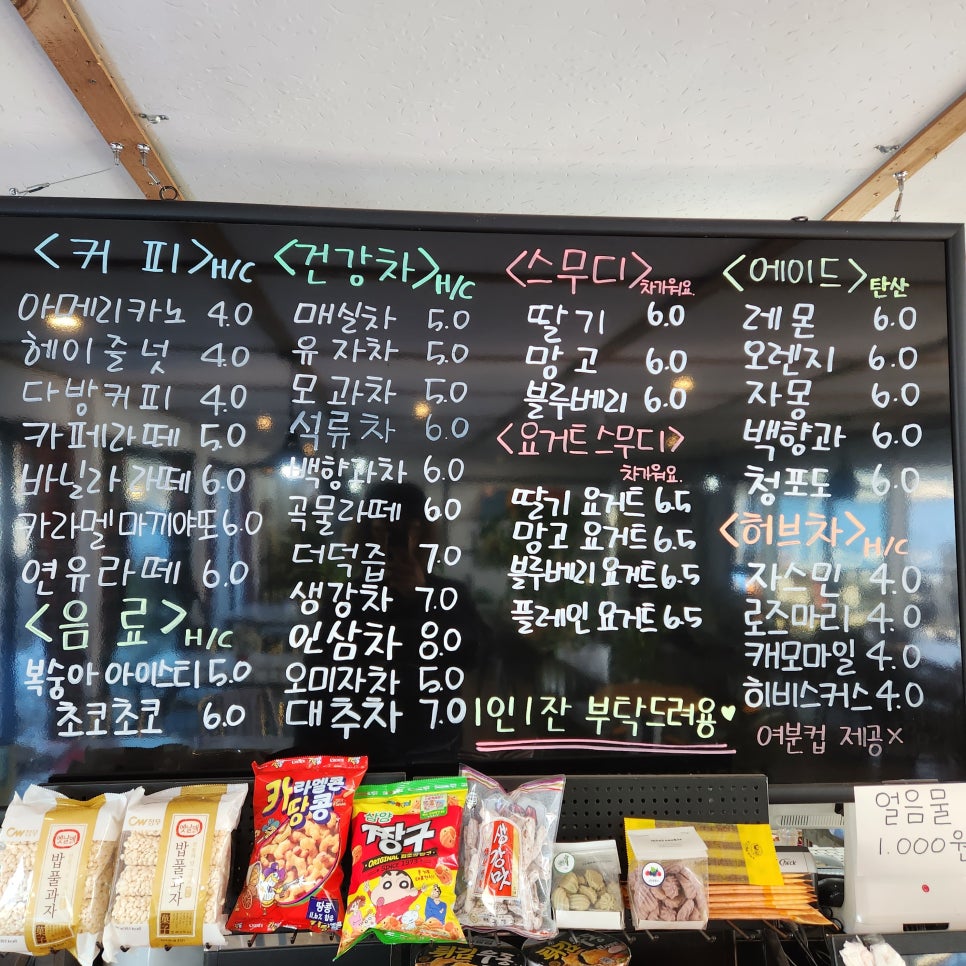 <커 피>H/C
아메리카노 4.0
헤이즐넛 4.0
다방커피 4.0
카페라떼 5.0
바닐라 라떼 6.0
카라멜 마끼야또 6.0
연유라떼 6.0
<음 료>H/C
복숭아 아이스티 5.0
초코초코 6.0
<건강차>H/C
매실차 5.0
유자차 5.0
모과차 5.0
석류차 6.0
백향과차 6.0
곡물라떼 6.0
더덕즙 7.0
생강차 7.0
인삼차 8.0
오미자차 5.0
대추차 7.0
<스무디>차가워요.
딸기 6.0
망고 6.0
블루베리 6.0
<요거트 스무디>
차가워요.
딸기 요거트 6.5
망고 요거트 6.5
블루베리 요거트 6.5
플레인 요거트 6.5
1인 1잔 부탁드려용♥
<에이드>탄산
레몬 6.0
오렌지 6.0
자몽 6.0
백향과 6.0
청포도 6.0
<허브차>H/C
자스민 4.0
로즈마리 4.0
캐모마일 4.0
히비스커스 4.0
여분컵 제공 X
CW 청우
옛날
밥풀과자
CW 청우
옛날
밥풀과자
카라멜콘
땅콩
땅콩
삼양
짱구
ORIGINAL
생강마
Check
얼음물
1.000원